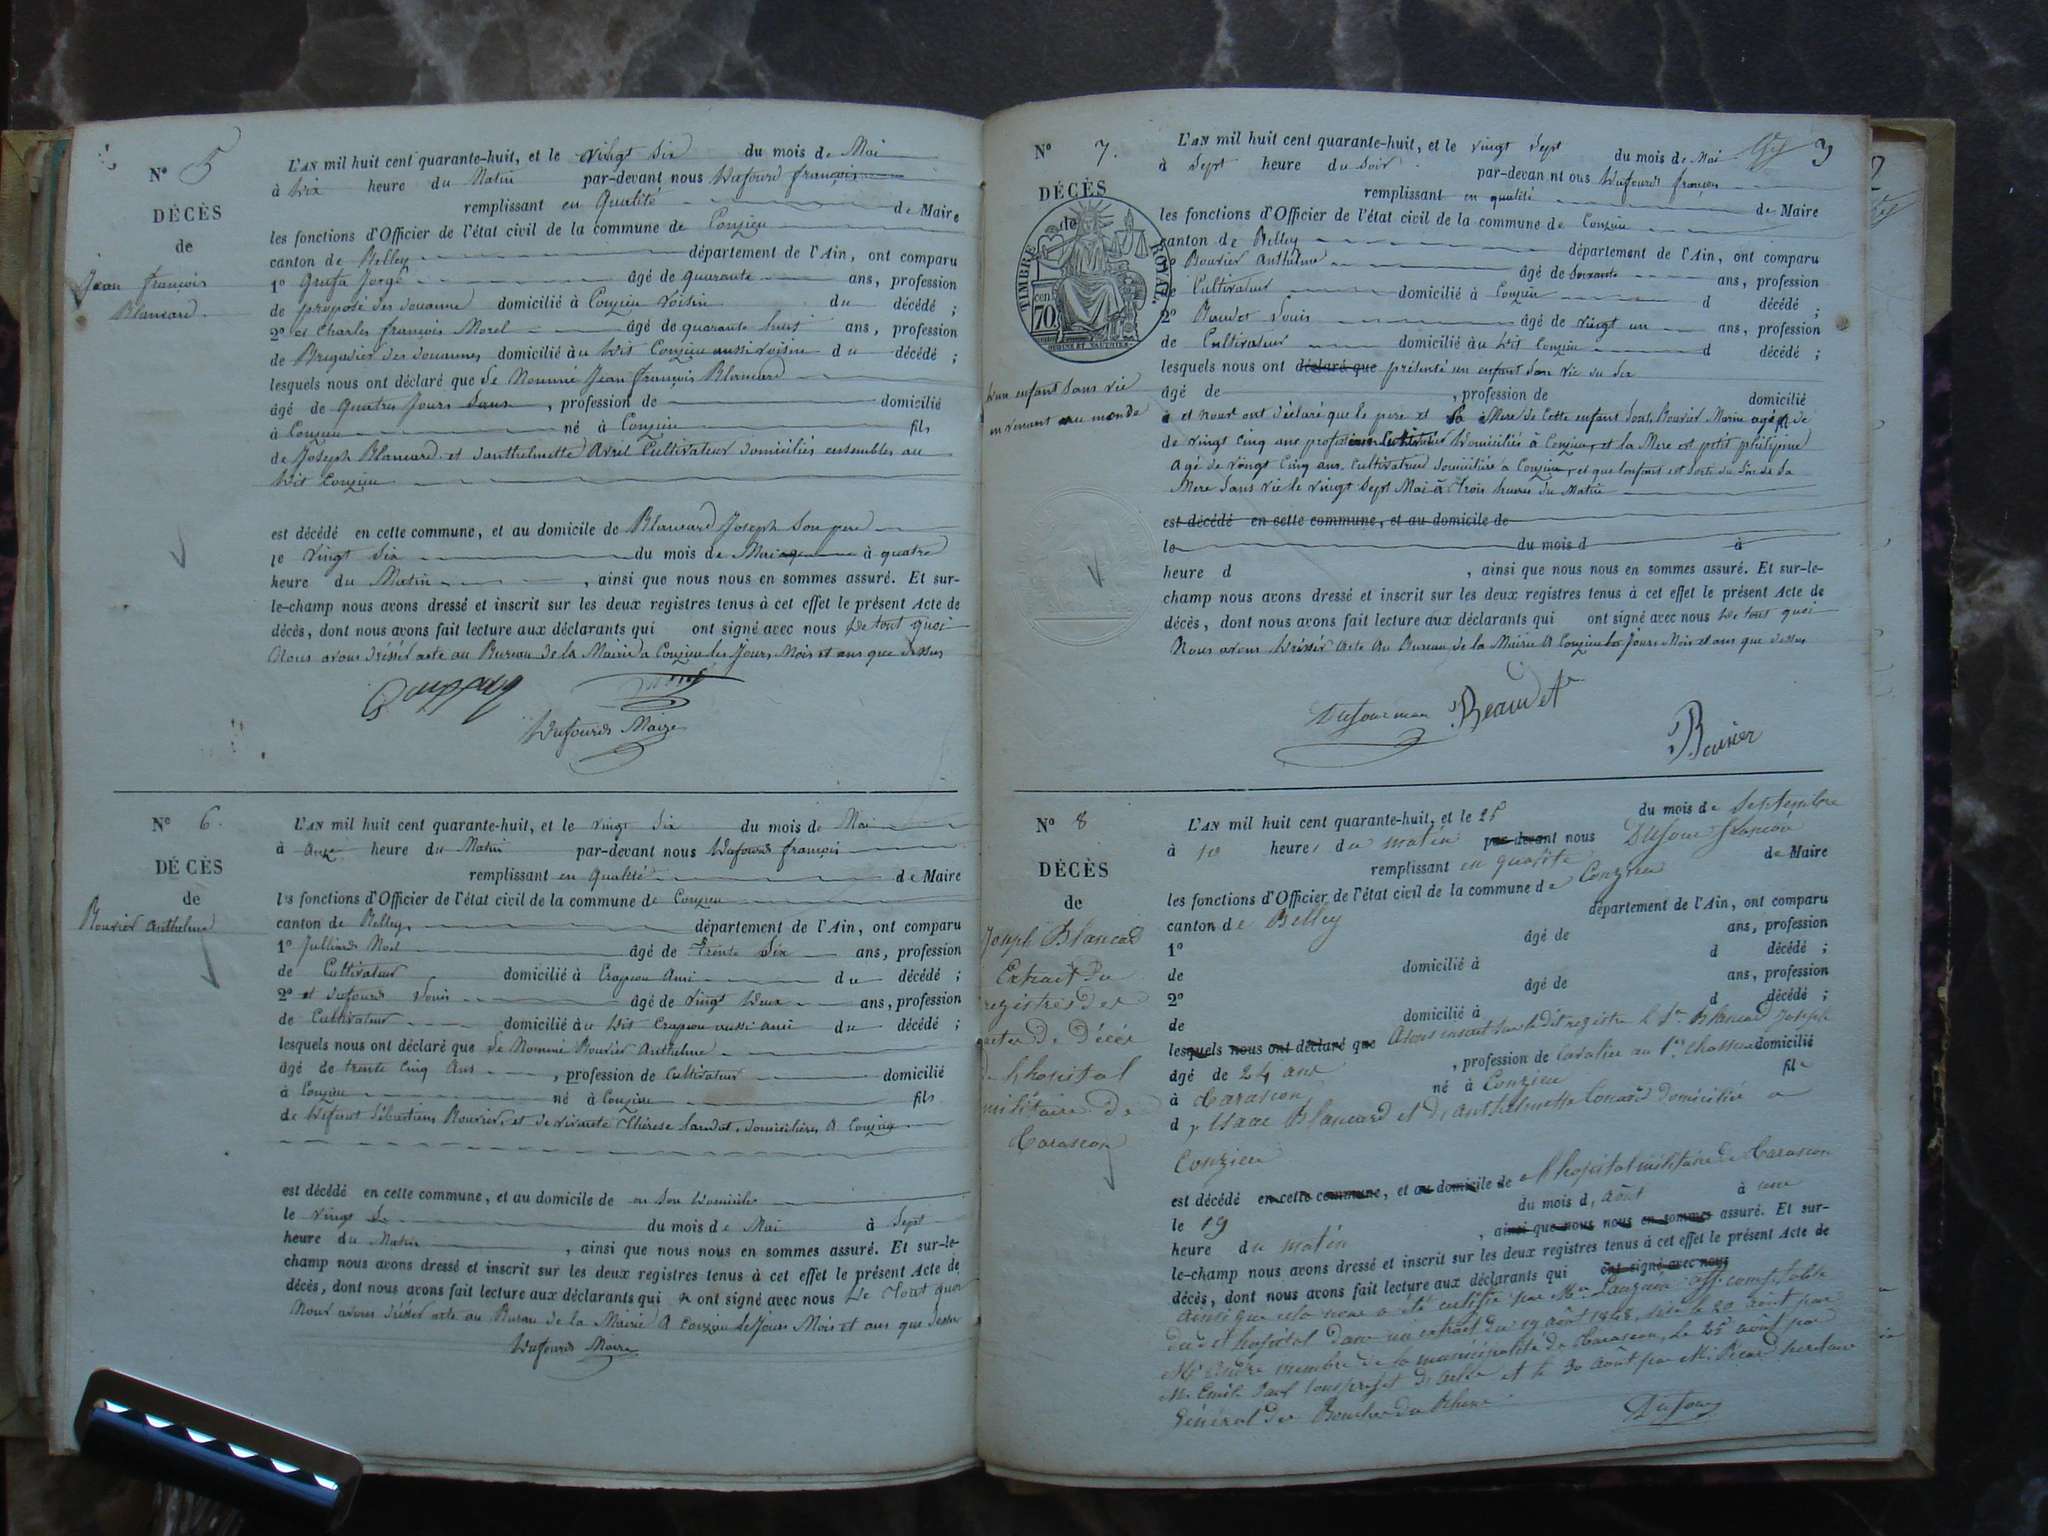 N° 5
DÉCÈS
de
Jean françois
Blancard.
L'AN mil huit cent quarante-huit, et le vingt Six du mois de Mai
à Dix heure du Matin par-devant nous Dufourd françois
remplissant en Qualité de Maire
les fonctions d'Officier de l'état civil de la commune de Conzieu
canton de Belley département de l'Ain, ont comparu
1° Jorge âgé de quarante ans, profession
de préposé des douanne domicilié à Conzieu voisin du décédé ;
2° et Charles françois Morel âgé de quarante huit ans, profession
de Brigadier des douannes domicilié à u dit Conzieu aussi voisin du décédé ;
lesquels nous ont déclaré que Le Nommé Jean françois Blancard
âgé de Quatres Jours Sans , profession de domicilié
à Conzieu né à Conzieu fils
de Joseph Blancard et danthelmette Avril Cultivateur domiciliés ensembles au
Dit Conzieu
est décédé en cette commune, et au domicile de Blancard Joseph Son pere
le vingt Six du mois de Mai à quatre
heure du Matin , ainsi que nous nous en sommes assuré. Et sur-
le-champ nous avons dressé et inscrit sur les deux registres tenus à cet effet le présent Acte de
décès, dont nous avons fait lecture aux déclarants qui ont signé avec nous De tout quoi
Nous avons dréssér acte au Bureau de la Mairie a Conzieu les Jours, Mois et ans que dessus
Dufourd Maire
N° 6.
DÉCÈS
de
Bouvier Anthelme
L'AN mil huit cent quarante-huit, et le vingt Six du mois de Mai
à onze heure du Matin par-devant nous Dufourd françois
remplissant en Qualité de Maire
les fonctions d'Officier de l'état civil de la commune de Conzieu
canton de Belley département de l'Ain, ont comparu
1° Julliard Noël âgé de trente Six ans, profession
de Cultivateur domicilié à Crapeou Ami du décédé ;
2° et Dufourd Louis âgé de vingt Deux ans, profession
de Cultivateur domicilié à u Dit Crapeou aussi ami du décédé ;
lesquels nous ont déclaré que Le Nommé Bouvier Anthelme
âgé de trente Cinq Ans , profession de Cultivateur domicilié
à Conzieu né à Conzieu fils
de Défunt Sébastien Bouvier, et de vivante Thérèse domiciliers A Conzieu
est décédé en cette commune, et au domicile de en Son Domicile
le vingt du mois de Mai à Sept
heure du Matin , ainsi que nous nous en sommes assuré. Et sur-le-
champ nous avons dressé et inscrit sur les deux registres tenus à cet effet le présent Acte de
décès, dont nous avons fait lecture aux déclarants qui n ont signé avec nous De Tout quoi
Nour avons dréssér acte au Bureau de la Mairie A Conzieu les Jours Mois et ans que dessus
Dufourd Maire
3
N° 7.
DÉCÈS
de
TIMBRE ROYAL.
70 cen
d'un enfant sans vie
en venant au monde
L'AN mil huit cent quarante-huit, et le vingt Sept du mois de Mai
à Sept heure du Soir par-devan nt ous Dufourd françois
remplissant en qualité de Maire
les fonctions d'Officier de l'état civil de la commune de Conzieu
canton de Belley département de l'Ain, ont comparu
1° Bouvier Anthelme âgé de Soixante ans, profession
de Cultivateur domicilié à Conzieu d décédé ;
2° Baudet Louis âgé de vingt un ans, profession
de Cultivateur domicilié à u Dit Conzieu d décédé ;
lesquels nous ont déclaré que présenté un enfant San vie
âgé de , profession de domicilié
à et nour ont déclaré que le pere et la Mere de Cette enfant Sont Bouvier Marin agé de
de vingt Cinq ans profession Cultivateur Domicilié à Conzieu, et la Mere est petit philipine
Agé de vingt Cinq ans Cultivatrice domiciliée a Conzieu, et que lenfant est Sorti du Sin de Sa
Mere Sans vie le vingt Sept Mai à Trois heures du Matin
est décédé en cette commune, et au domicile de
le du mois d à
heure d , ainsi que nous nous en sommes assuré. Et sur-le-
champ nous avons dressé et inscrit sur les deux registres tenus à cet effet le présent Acte de
décès, dont nous avons fait lecture aux déclarants qui ont signé avec nous De tout quoi
Nous avons Dréssér Acte Au Bureau de la Mairie A Conzieu les Jours Mois et ans que dessus
Beaudet
Bouvier
N° 8
DÉCÈS
de
Joseph Blancard
Extrait du
registres des
actes de Décès
de l'hopital
militaire de
Tarascon
L'AN mil huit cent quarante-huit, et le 25 du mois de Septembre
à 10 heures du matin par-devant nous Dufour françois
remplissant en qualité de Maire
les fonctions d'Officier de l'état civil de la commune de Conzieu
canton de Belley département de l'Ain, ont comparu
1° âgé de ans, profession
de domicilié à d décédé ;
2° âgé de ans, profession
de domicilié à d décédé ;
lesquels nous ont déclaré que Avons inscrit sur le dit registre le Sr Blancard Joseph
âgé de 24 ans , profession de Cavalier au 1er chasseur domicilié
à Tarascon né à Conzieu fils
d'Isaac Blancard et d'anthelmette domiciliée a
Conzieu
est décédé en cette commune, et au domicile de l'hopital militaire de Tarascon
le 19 du mois d' août à une
heure du matin , ainsi que nous nous en sommes assuré. Et sur-
le-champ nous avons dressé et inscrit sur les deux registres tenus à cet effet le présent Acte de
décès, dont nous avons fait lecture aux déclarants qui ont signé avec nous
ainsi que cela nous a été certifié par Mr off. comptable
du dit hopital dans un extrait du 19 août 1848, le 20 août par
Mr membre de la municipalité de Tarascon, le 25 août par
Mr Emile Paul Sous préfet d'arles et le 30 août par Mr Picard secrétaire
Général des Bouches du Rhone
Dufour